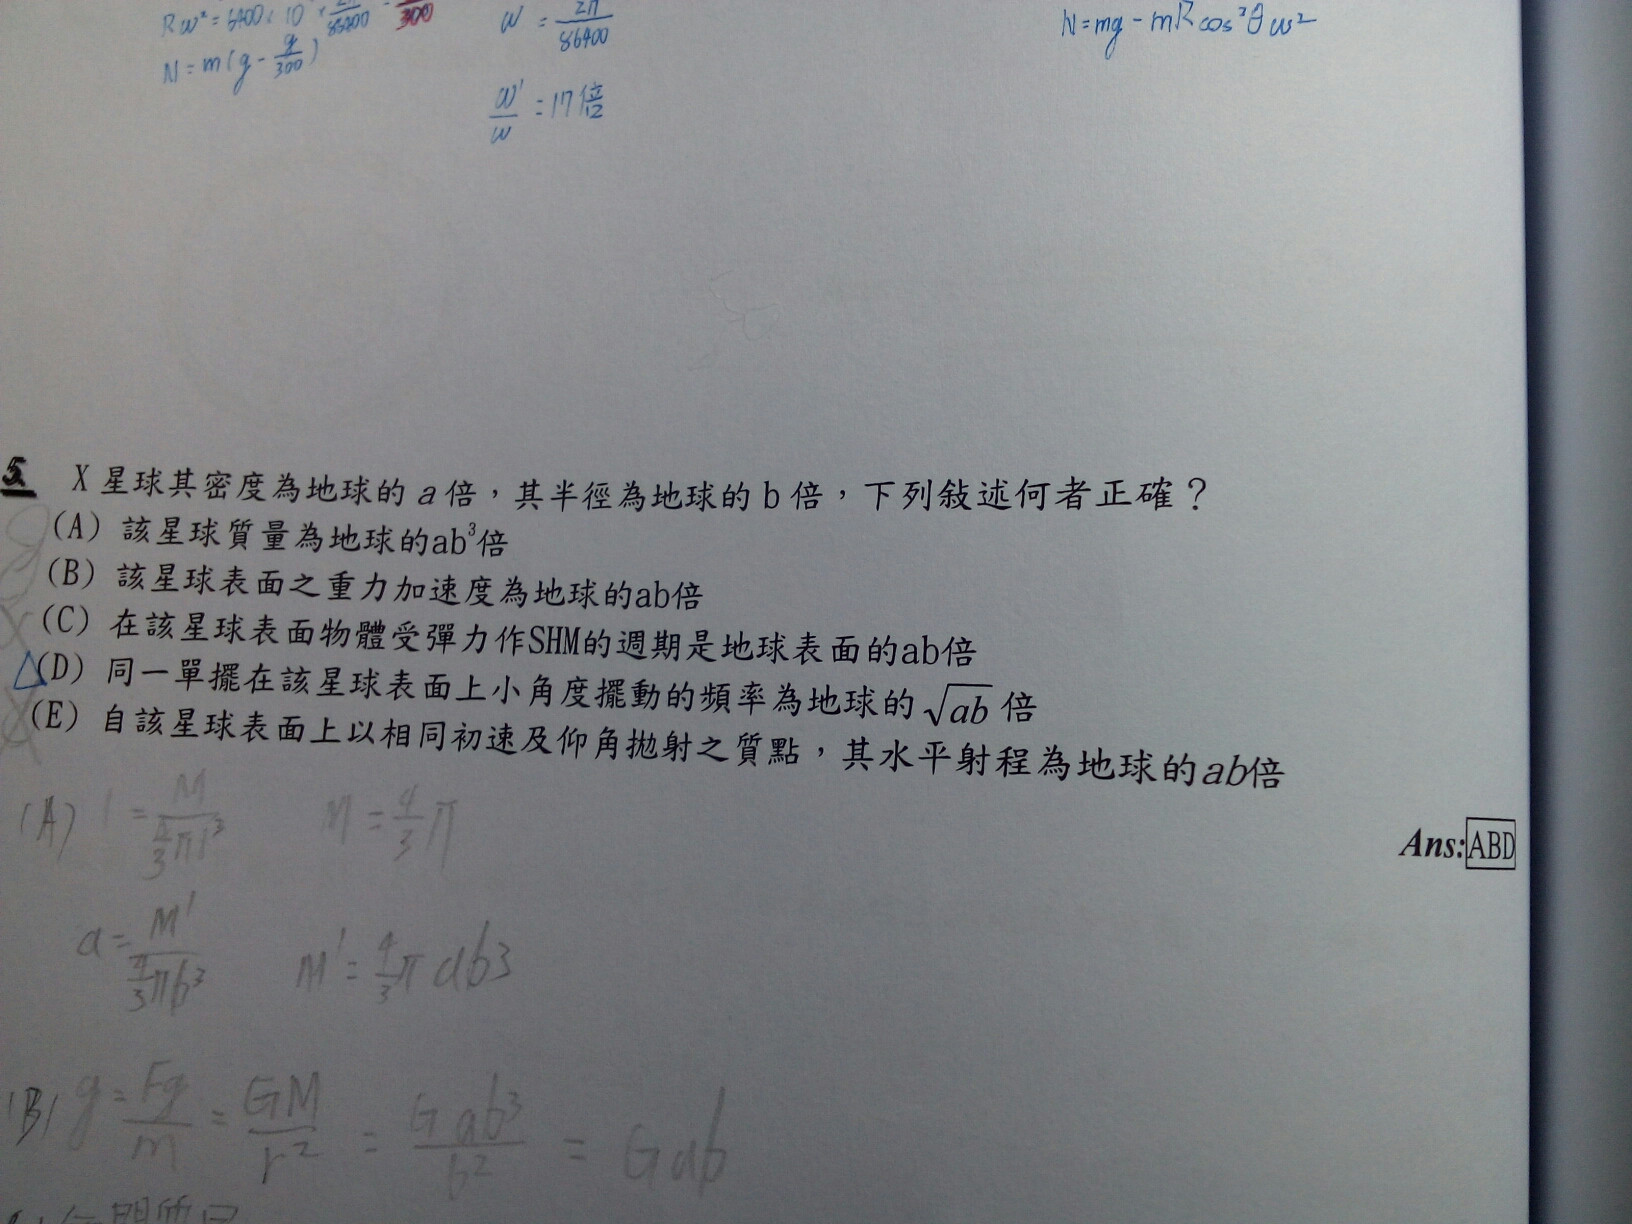 Rω² = 6400 × 10
300
ω = 2π/86400
N = mg - mR cos²θ ω²
N = m(g - g/300)
ω'/ω = 17倍
5. X 星球其密度為地球的 a 倍，其半徑為地球的 b 倍，下列敍述何者正確？
(A) 該星球質量為地球的ab³倍
(B) 該星球表面之重力加速度為地球的ab倍
(C) 在該星球表面物體受彈力作SHM的週期是地球表面的ab倍
△(D) 同一單擺在該星球表面上小角度擺動的頻率為地球的 √ab 倍
(E) 自該星球表面上以相同初速及仰角拋射之質點，其水平射程為地球的ab倍
Ans:ABD
(A) 1 = M/(4/3 π1³) M = 4/3 π
a = M'/(4/3 πb³) M' = 4/3 π ab3
(B) g = Fg/m = GM/r² = G ab³/b² = Gab